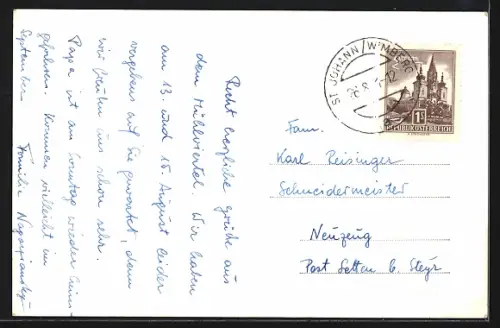 Recht herzliche Grüße aus
dem Mühlviertel. Wir haben
am 13. und 15. August leider
vergebens auf Sie gewartet, denn
wir freuten uns schon sehr.
Papa ist am Sonntag wieder heim-
gefahren. Kommen vielleicht im
September
Familie
ST. JOHANN / WIMBERG
REPUBLIK ÖSTERREICH
Fam.
Karl Reisinger
Schneidermeister
Neuzeug
Post Setten b. Steyr